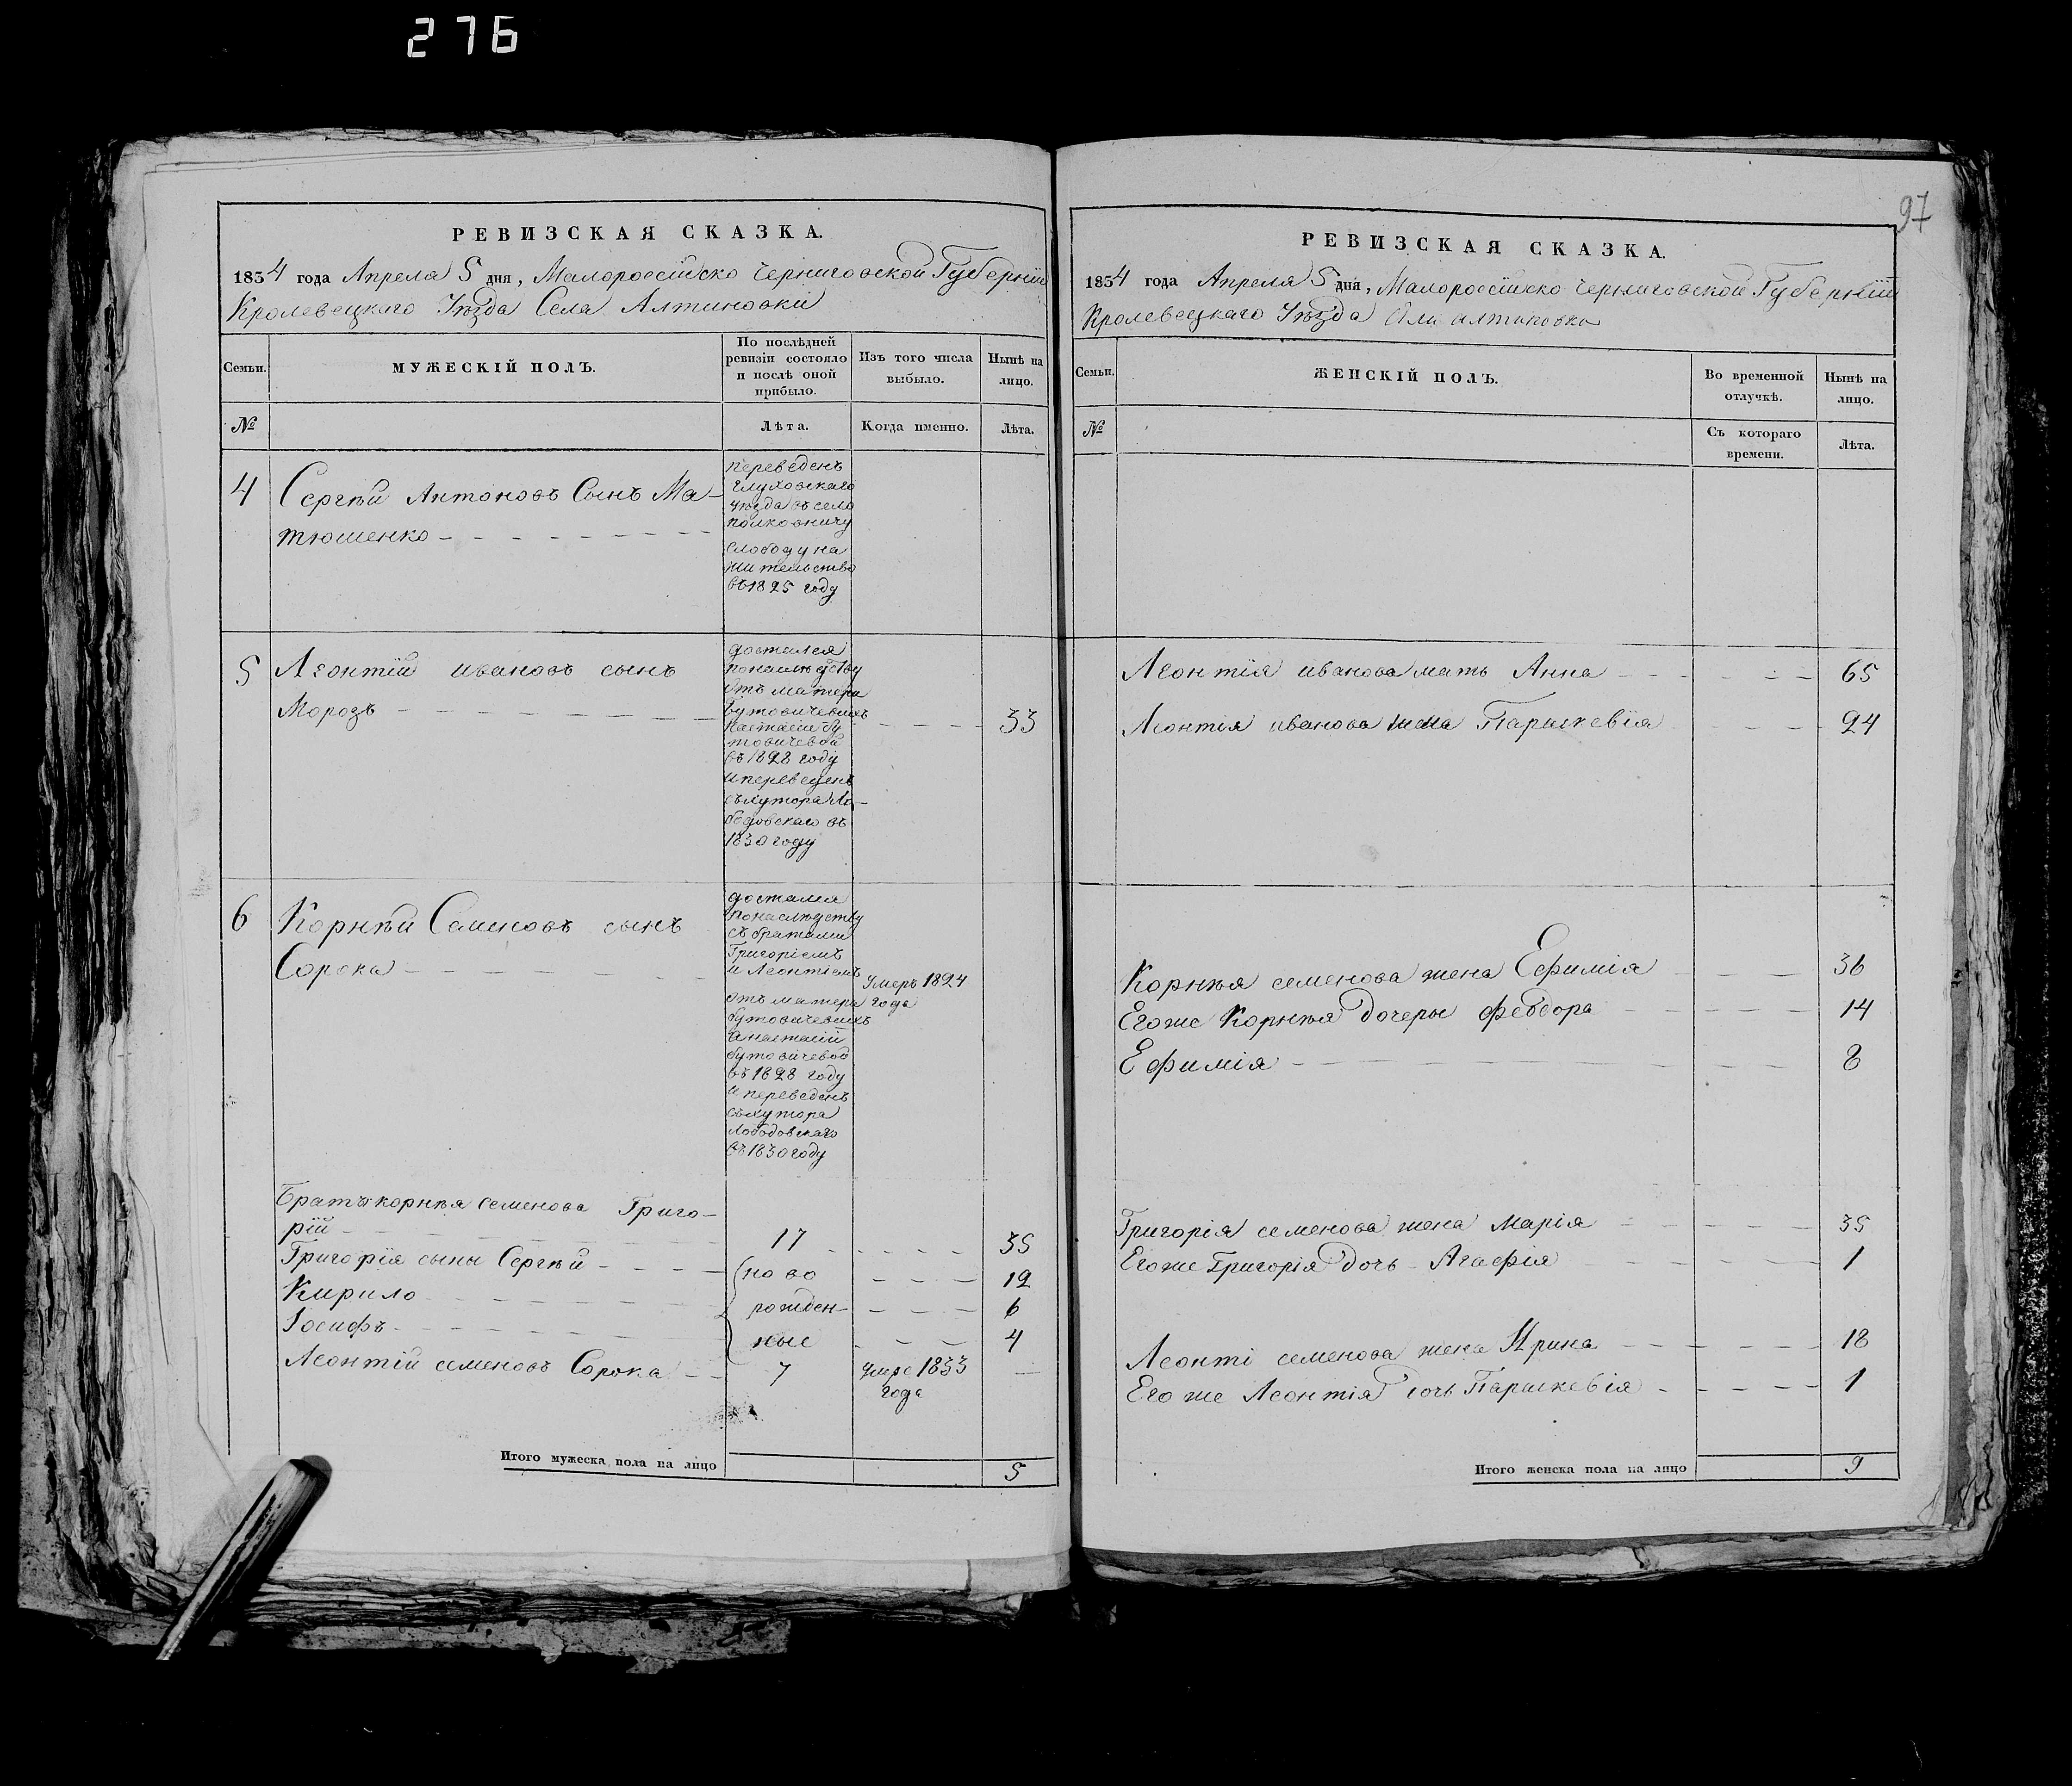 276
97
РЕВИЗСКАЯ СКАЗКА.
1834 года Апреля 5 дня, Малороссійско Черниговской Губерніи
Кролевецкаго Уѣзда Села Алтиновки
Семьи.
МУЖЕСКІЙ ПОЛЪ.
По послѣдней
ревизіи состояло
и послѣ оной
прибыло.
Изъ того числа
выбыло.
Нынѣ на
лицо.
№
Лѣта.
Когда именно.
Лѣта.
4
Сергѣй Антоновъ Сынъ Ма-
тюшенко
переведенъ
глуховскаго
уѣзда въ село
полковничу
слободу на
жительство
въ 1825 году
5
Леонтій ивановъ сынъ
Морозъ
33
достался
понаслѣдству
отъ матера
бутовичевыхъ
Настасіи бу
товичевой
въ 1828 году
и переведенъ
съ хутора Ло-
бодовскаго въ
1830 году
6
Корнѣй Семеновъ сынъ
Сорока
достался
понаслѣдству
съ братами
Григоріемъ
и Леонтіемъ
отъ матера
бутовичевыхъ
Анастасіи
бутовичевой
въ 1828 году
и переведенъ
съ хутора
Лободовскаго
въ 1830 году
Умеръ 1824
года
Братъ корнѣя семенова Григо-
рій
17
35
Григорія сыны Сергѣй
ново
12
Кирило
рожден-
6
Іосифъ
ные
4
Леонтій семеновъ Сорока
7
умре 1833
года
Итого мужеска пола на лицо
5
РЕВИЗСКАЯ СКАЗКА.
1834 года Апреля 5 дня, Малороссійско Черниговской Губерніи
Кролевецкаго Уѣзда Села алтиновки
Семьи.
ЖЕНСКІЙ ПОЛЪ.
Во временной
отлучкѣ.
Нынѣ на
лицо.
№
Съ котораго
времени.
Лѣта.
Леонтія иванова мать Анна 65
Леонтія иванова жена Параскевія 24
Корнѣя семенова жена Ефимія 36
Егоже Корнѣя дочеры Феодора 14
Ефимія 8
Григорія семенова жена Марія 35
Егоже Григорія дочь Агафія 1
Леонті семенова жена Ирина 18
Его же Леонтія дочь Параскевія 1
Итого женска пола на лицо
9